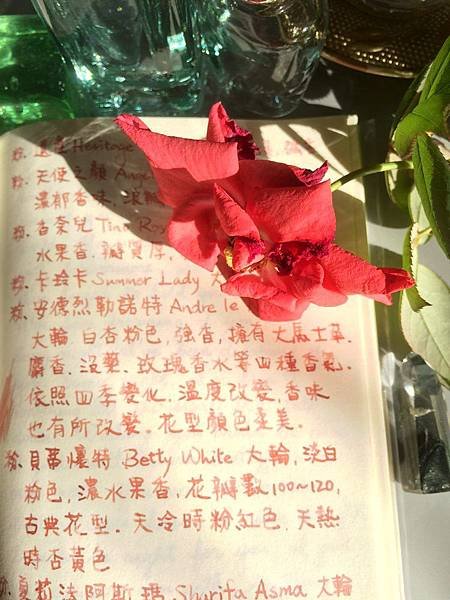 粉. 遺產 Heritage
粉. 天使之顏 Ange
濃郁香味, 波
粉. 香奈兒 Tina Ros
水果香. 瓣質厚,
粉. 卡玲卡 Summer Lady
粉. 安德烈勒諾特 Andre le
大輪. 白杏粉色, 強香, 擁有大馬士革.
麝香. 沒藥. 玫瑰香水等四種香氣.
依照四季變化, 溫度改變, 香味
也有所改變. 花型顏色柔美.
粉. 貝蒂懷特 Betty White 大輪, 淡白
粉色, 濃水果香, 花瓣數100~120,
古典花型. 天冷時粉紅色. 天熱
時杏黃色
粉. 夏莉法阿斯瑪 Sharifa Asma 大輪